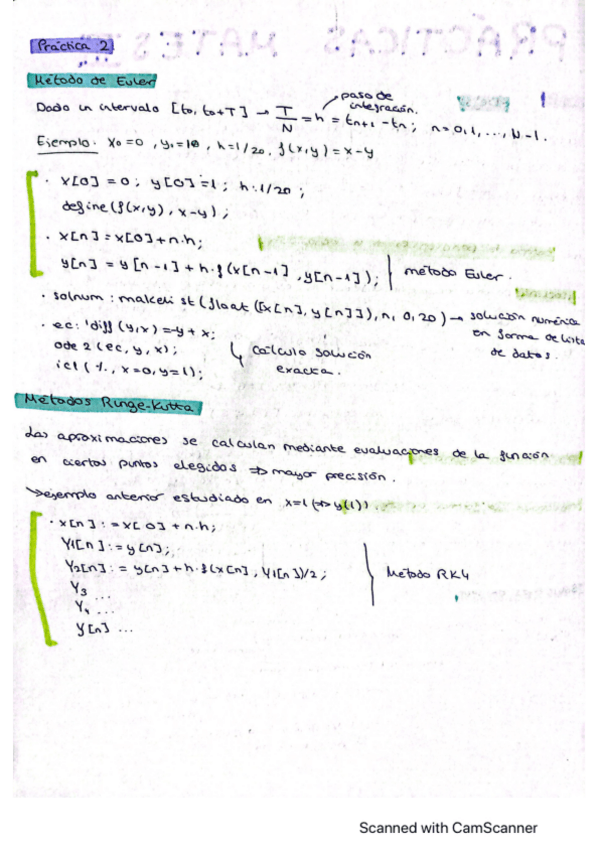 Práctica 2
Método de Euler
Dado un intervalo [t0, t0+T] → T/N = h = tn+1 - tn ; n=0,1, ..., N-1.
paso de integración.
Ejemplo. x0=0 , y0=10 , h=1/20. f(x,y)=x-y
· x[0] = 0 ; y[0]=1 ; h:1/20 ;
define(f(x,y), x-y) ;
· x[n]=x[0]+n.h;
y[n] = y[n-1]+h.f(x[n-1],y[n-1]); método Euler.
· solnum : makelist(float([x[n], y[n]]), n, 0, 20) → solución numérica
en forma de lista
de datos.
· ec: 'diff(y,x)=-y+x;
ode2(ec, y, x);
ic1(%, x=0,y=1);
↳ cálculo solución
exacta.
Métodos Runge-Kutta
Las aproximaciones se calculan mediante evaluaciones de la función
en ciertos puntos elegidos ⇒ mayor precisión.
→ejemplo anterior estudiado en x=1 (→y(1)).
· x[n] := x[0]+n.h;
Y1[n]:= y[n];
Y2[n]:= y[n]+h.f(x[n], Y1[n])/2 ; Método RK4
Y3 ...
Y4 ...
y[n] ...
Scanned with CamScanner